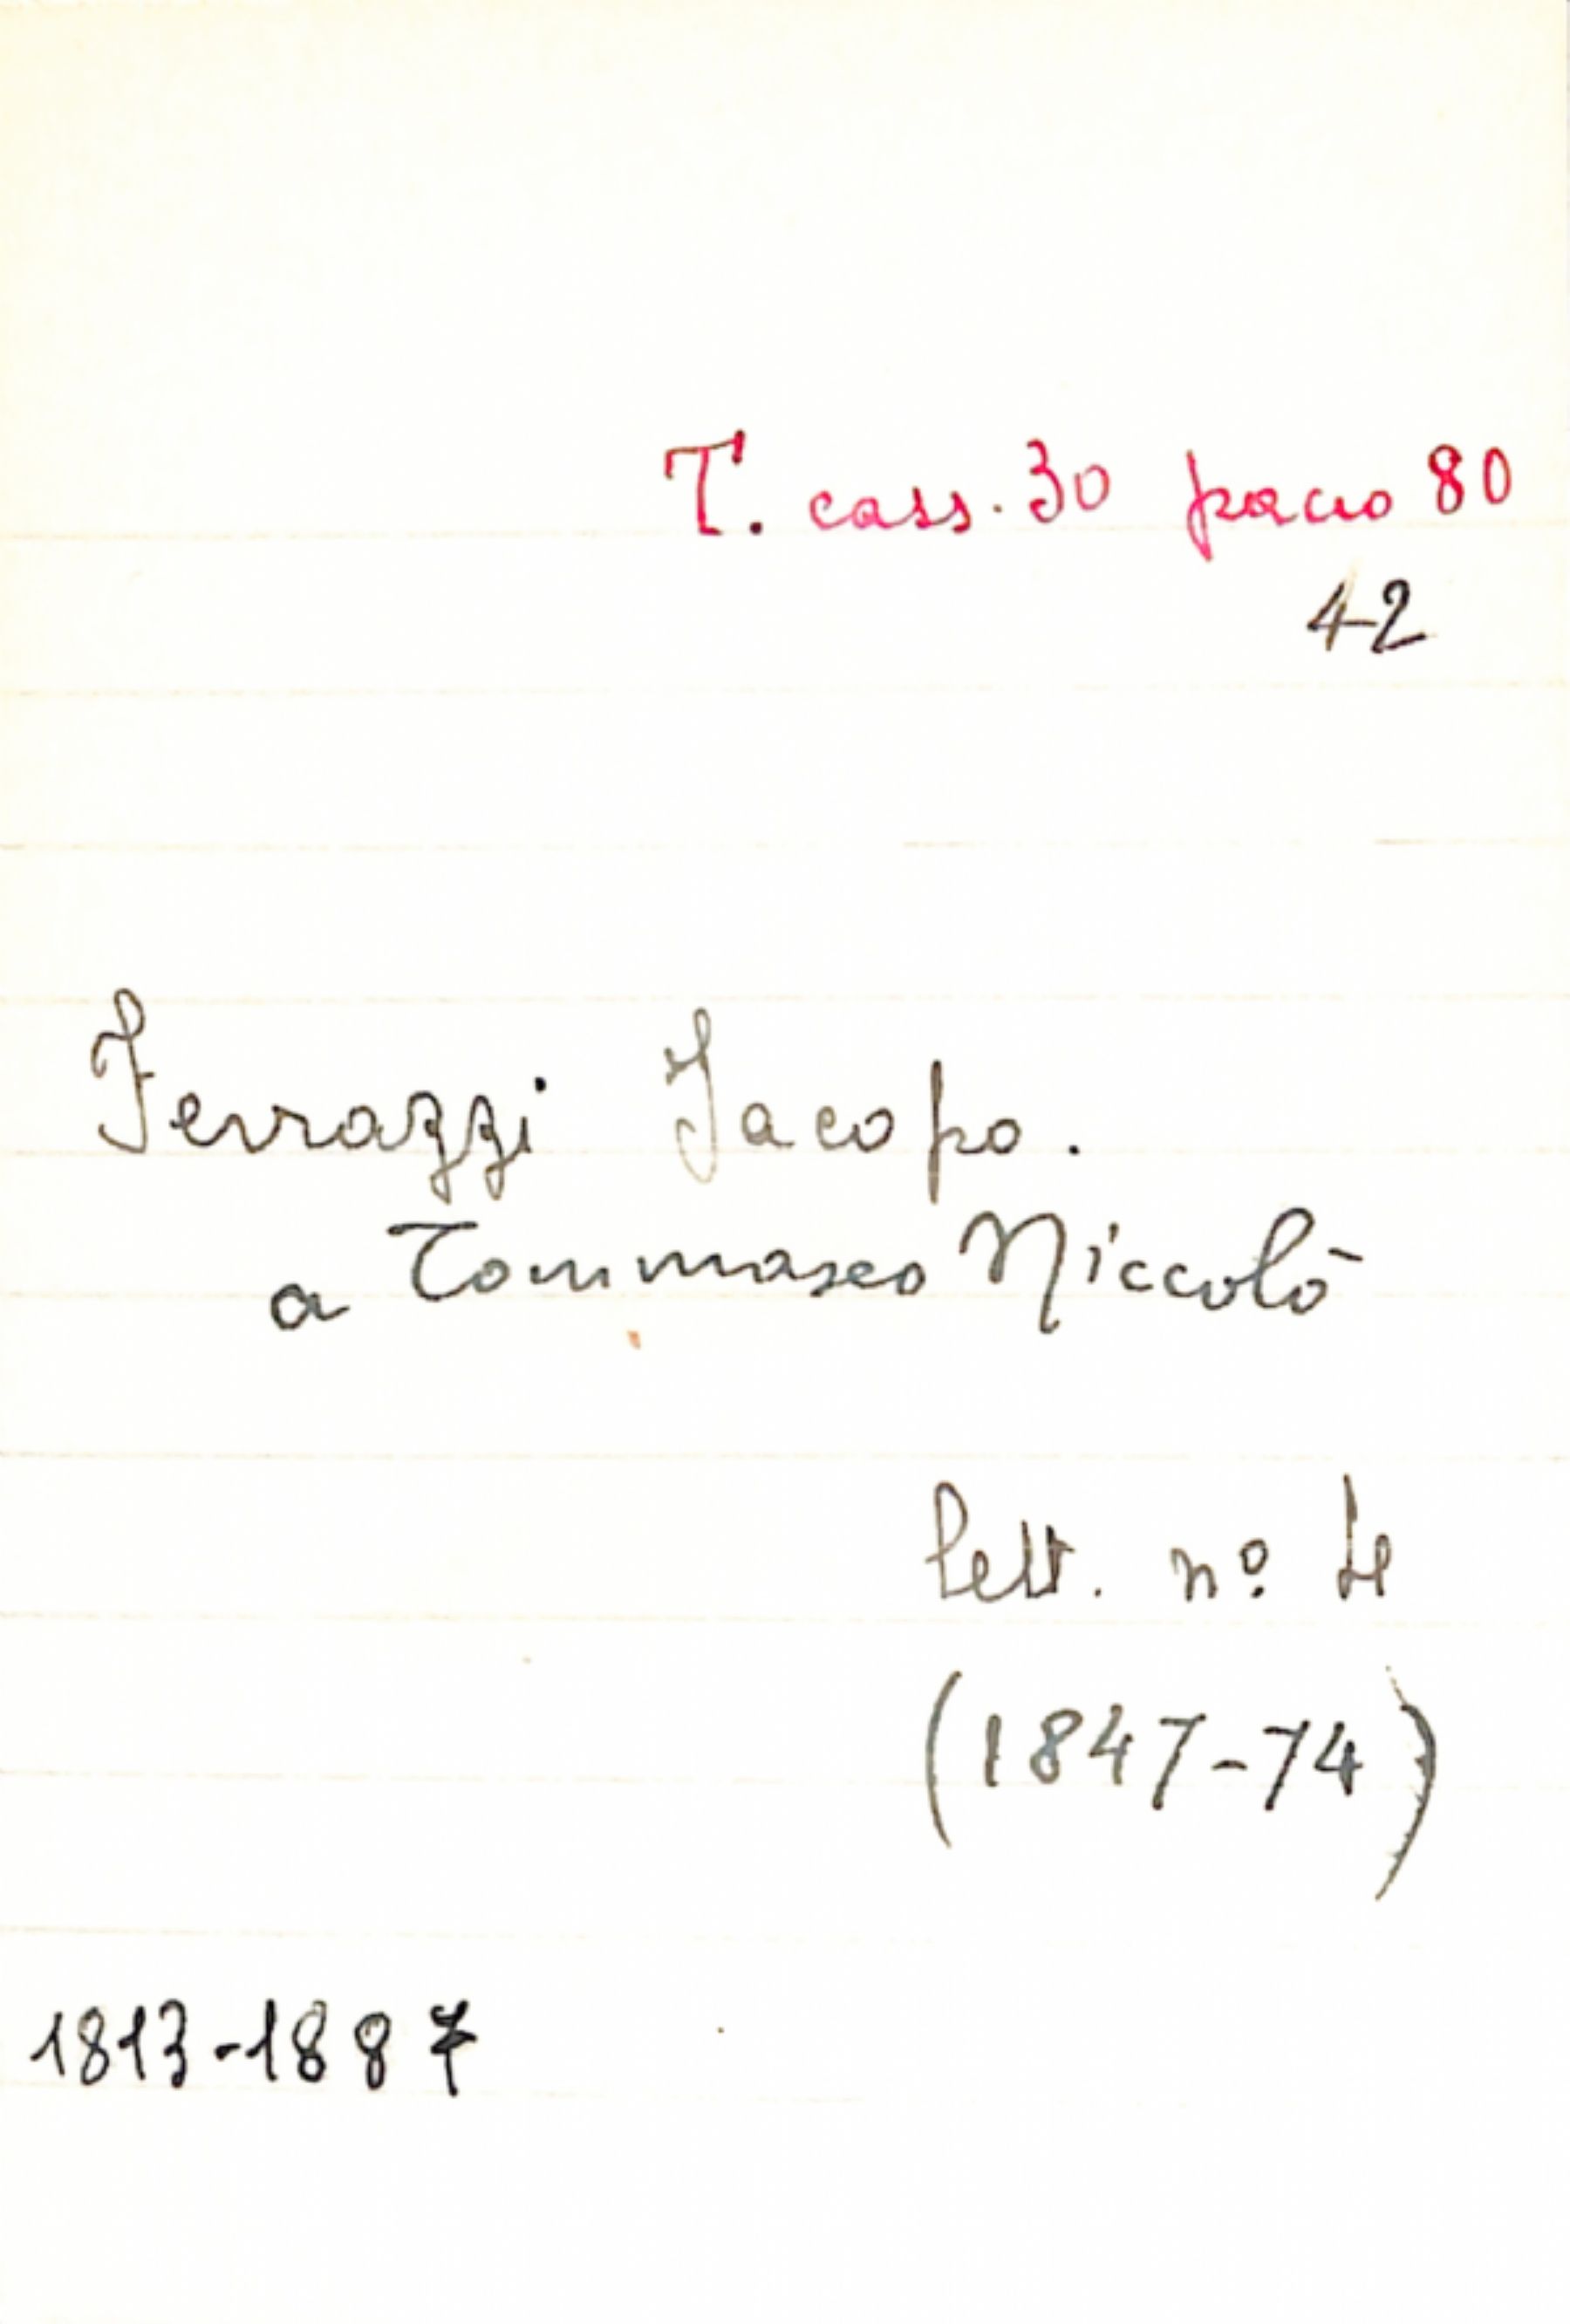 T. cass. 30 pacco 80
42
Ferrazzi Jacopo.
a Tommaseo Niccolò
lett. nº 4
(1847-74)
1813-1887